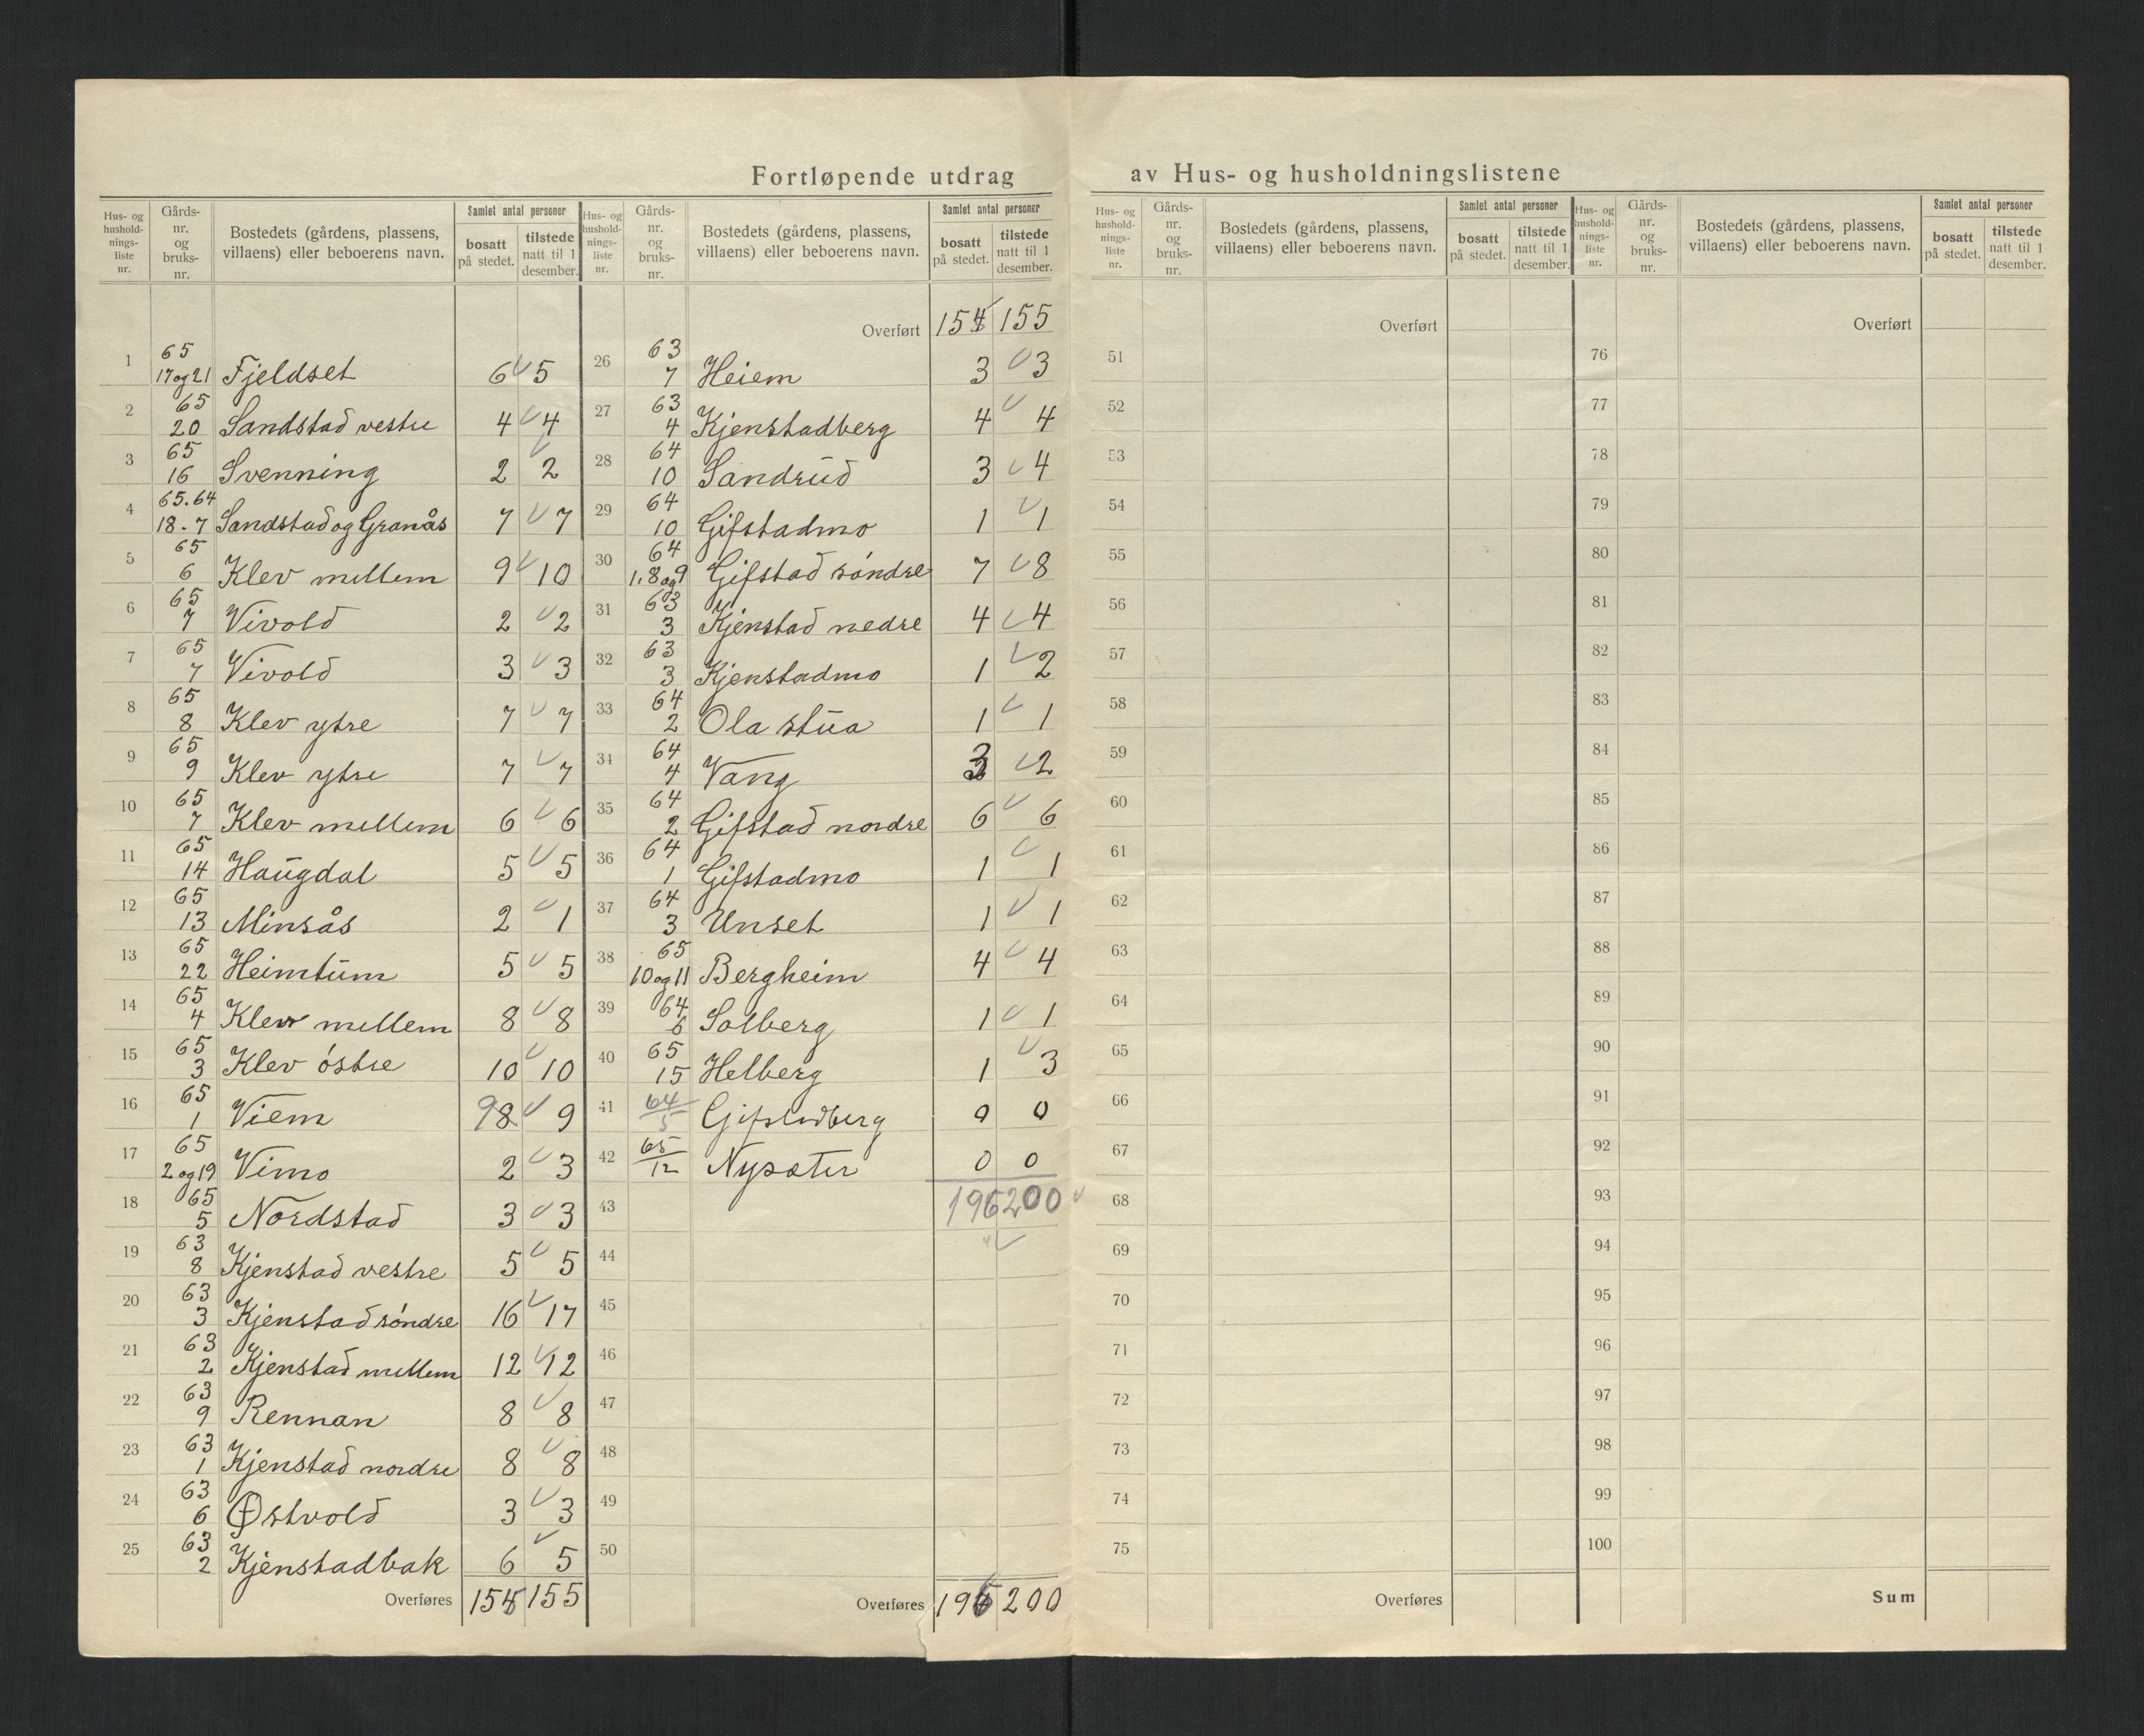 Fortløpende utdrag av Hus- og husholdningslistene
Hus- og hushold-nings-liste nr. Gårds-nr. og bruks-nr. Bostedets (gårdens, plassens, villaens) eller beboerens navn. Samlet antal personer bosatt på stedet. tilstede natt til 1 desember.
1 65 17 og 21 Fjeldset 6 5
2 65 20 Sandstad vestre 4 4
3 65 16 Svenning 2 2
4 65.64 18-7 Sandstad og Granås 7 7
5 65 6 Klev mellem 9 10
6 65 7 Vivold 2 2
7 65 7 Vivold 3 3
8 65 8 Klev ytre 7 7
9 65 9 Klev ytre 7 7
10 65 7 Klev mellem 6 6
11 65 14 Haugdal 5 5
12 65 13 Minsås 2 1
13 65 22 Heimtun 5 5
14 65 4 Klev mellem 8 8
15 65 3 Klev östre 10 10
16 65 1 Viem 98 9
17 65 2 og 19 Vimo 2 3
18 65 5 Nordstad 3 3
19 63 8 Kjenstad vestre 5 5
20 63 3 Kjenstad söndre 16 17
21 63 2 Kjenstad mellem 12 12
22 63 9 Rennan 8 8
23 63 1 Kjenstad nordre 8 8
24 63 6 Østvold 3 3
25 63 2 Kjenstadbak 6 5
Overføres 155
Hus- og hushold-nings-liste nr. Gårds-nr. og bruks-nr. Bostedets (gårdens, plassens, villaens) eller beboerens navn. Samlet antal personer bosatt på stedet. tilstede natt til 1 desember.
Overført 155
26 63 7 Heiem 3 3
27 63 4 Kjenstadberg 4 4
28 64 10 Sandrud 3 4
29 64 10 Gifstadmo 1 1
30 64 1, 8 og 9 Gifstad söndre 7 8
31 63 3 Kjenstad nedre 4 4
32 63 3 Kjenstadmo 1 2
33 64 2 Ola stua 1 1
34 64 4 Vang 3 2
35 64 2 Gifstad nordre 6 6
36 64 1 Gifstadmo 1 1
37 64 3 Unset 1 1
38 65 10 og 11 Bergheim 4 4
39 64 6 Solberg 1 1
40 65 15 Helberg 1 3
41 64 5 Gifstadberg 0 0
42 65/12 Nysæter 0 0
43 195 200
44
45
46
47
48
49
50
Overføres 200
Hus- og hushold-nings-liste nr. Gårds-nr. og bruks-nr. Bostedets (gårdens, plassens, villaens) eller beboerens navn. Samlet antal personer bosatt på stedet. tilstede natt til 1 desember.
Overført
51
52
53
54
55
56
57
58
59
60
61
62
63
64
65
66
67
68
69
70
71
72
73
74
75
Overføres
Hus- og hushold-nings-liste nr. Gårds-nr. og bruks-nr. Bostedets (gårdens, plassens, villaens) eller beboerens navn. Samlet antal personer bosatt på stedet. tilstede natt til 1 desember.
Overført
76
77
78
79
80
81
82
83
84
85
86
87
88
89
90
91
92
93
94
95
96
97
98
99
100
Sum